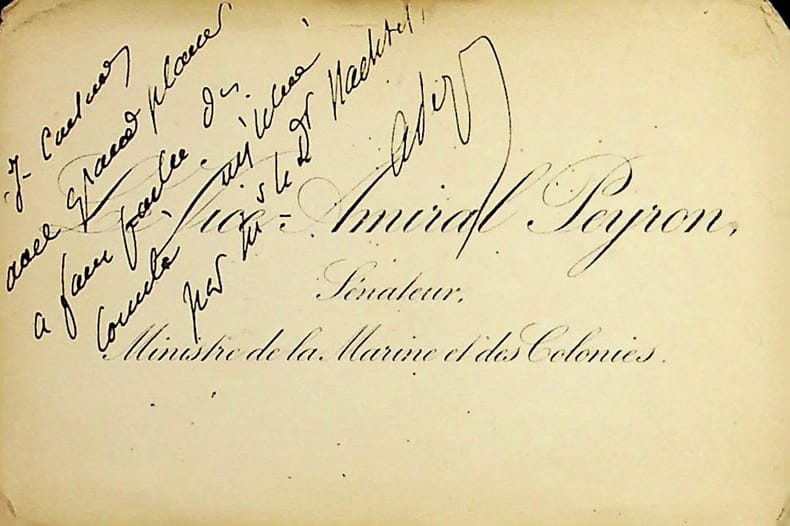 Je consens
avec grand plaisir
a faire partie du
comité
par Mr le Dr Nachtel,
Le Vice-Amiral Peyron,
Sénateur,
Ministre de la Marine et des Colonies.